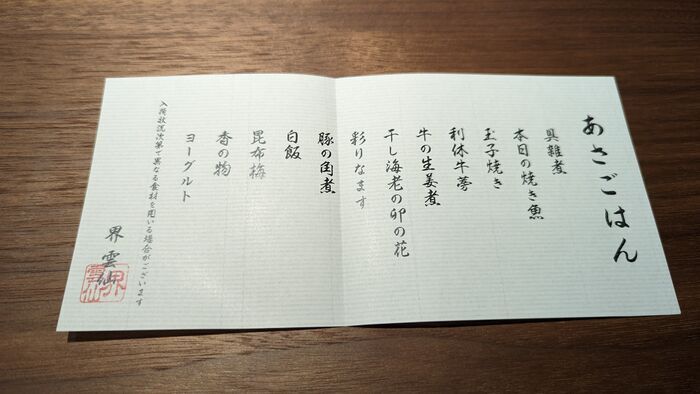 あさごはん
具雑煮
本日の焼き魚
玉子焼き
利休牛蒡
牛の生姜煮
干し海老の卯の花
彩りなます
豚の角煮
白飯
昆布梅
香の物
ヨーグルト
入荷状況次第で異なる食材を用いる場合がございます
界 雲仙
界雲仙